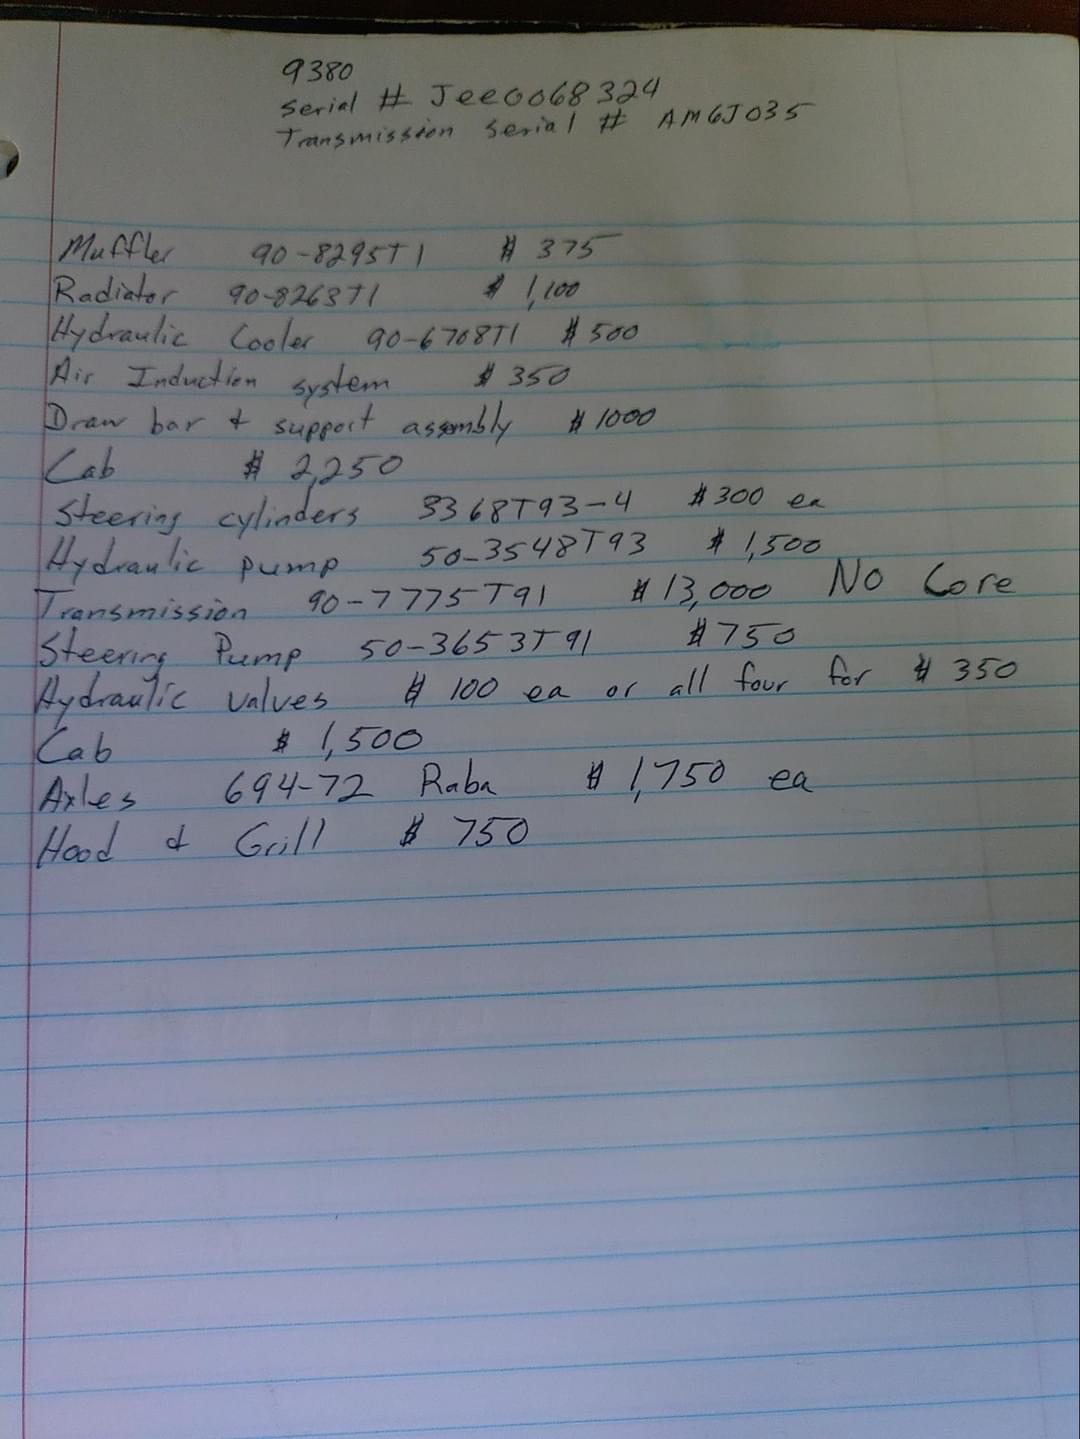 9380
Serial # Jee0068324
Transmission Serial # AM6J035
Muffler 90-8295T1 $ 375
Radiator 90-8263T1 $ 1,100
Hydraulic Cooler 90-6708T1 $ 500
Air Induction system $ 350
Draw bar & support assembly $ 1000
Cab $ 2,250
Steering cylinders 3368T93-4 $ 300 ea
Hydraulic pump 50-3548T93 $ 1,500
Transmission 90-7775T91 $ 13,000 No Core
Steering Pump 50-3653T91 $ 750
Hydraulic valves $ 100 ea or all four for $ 350
Cab $ 1,500
Axles 694-72 Raba $ 1,750 ea
Hood & Grill $ 750